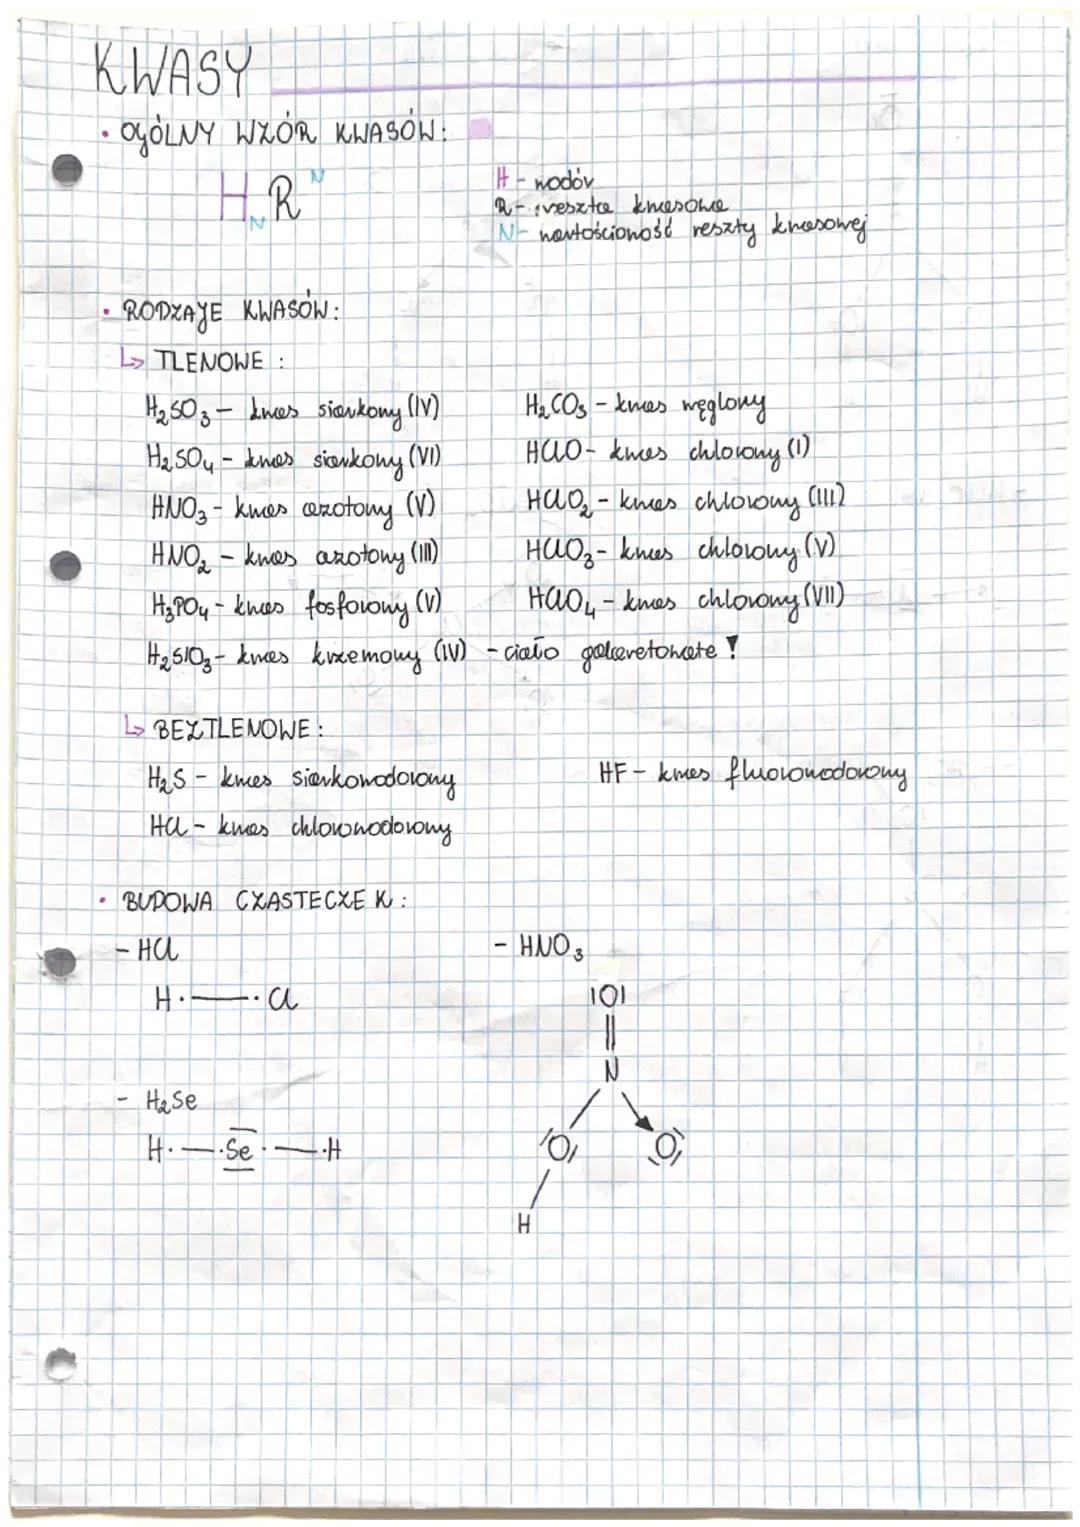 KWASY
• OGÓLNY WZÓR KWASÓW:
H_N R^N
H - wodór
R - reszta kwasowa
N - wartościowość reszty kwasowej
• RODZAJE KWASÓW:
↳ TLENOWE :
H₂SO₃ - kwas siarkowy (IV)
H₂SO₄ - kwas siarkowy (VI)
HNO₃ - kwas azotowy (V)
HNO₂ - kwas azotowy (III)
H₃PO₄ - kwas fosforowy (V)
H₂SIO₃ - kwas krzemowy (IV) - ciało galaretowate !
H₂CO₃ - kwas węglowy
HClO - kwas chlorowy (I)
HClO₂ - kwas chlorowy (III)
HClO₃ - kwas chlorowy (V)
HClO₄ - kwas chlorowy (VII)
↳ BEZTLENOWE :
H₂S - kwas siarkowodorowy
HCl - kwas chlorowodorowy
HF - kwas fluorowodorowy
• BUDOWA CZASTECZEK :
- HCl
H · — · Cl
- H₂Se
H · — · Se · — · H
- HNO₃
|O|
||
N
O O
H